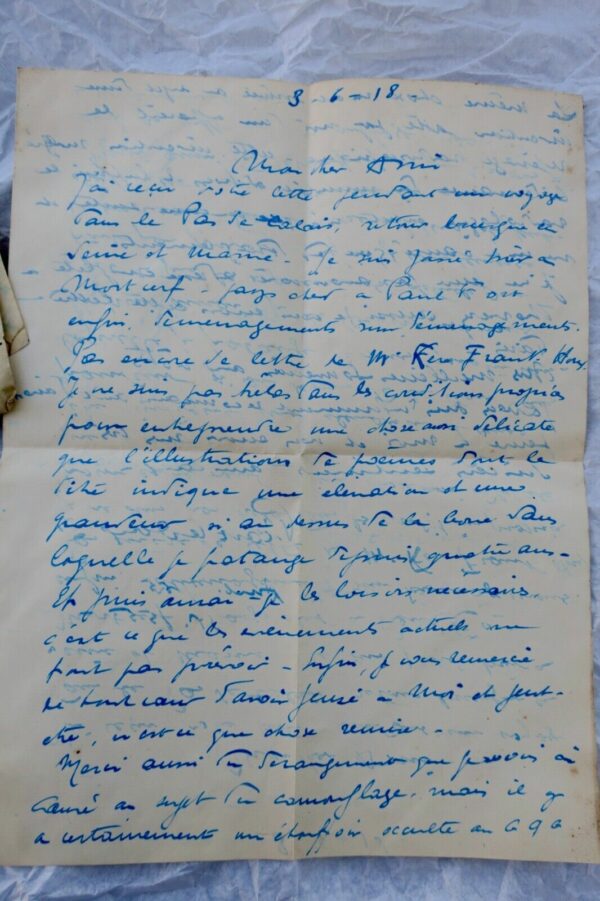 3-6-18
Mon cher Ami
J'ai reçu votre lettre pendant un voyage
dans le Pas de Calais, retour brusque en
Seine et Marne. Je suis passé à
Mortcerf - pays cher à Paul Fort
enfin, déménagements sur déménagements.
Pas encore de lettre de Mr
Je ne suis pas hélas dans les conditions propices
pour entreprendre une chose aussi délicate
que l'illustration de poèmes dont le
titre indique une élévation et une
grandeur si au dessus de la boue dans
laquelle je patauge depuis quatre ans -
Et puis aurai-je les loisirs nécessaires,
c'est ce que les événements actuels ne
font pas prévoir - Enfin, je vous remercie
de tout cœur d'avoir pensé à moi et peut-
être, n'est-ce que chose remise -
Merci aussi du dérangement que je vous ai
causé au sujet du camouflage, mais il y
a certainement un étouffoir occulte au G Q G